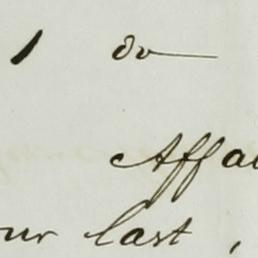 1 do
Affai
our last,